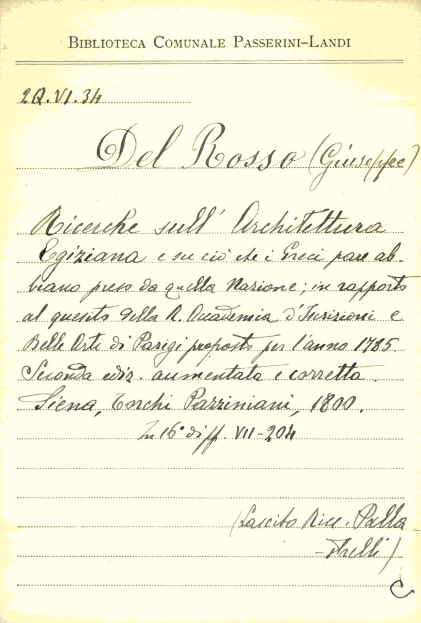 BIBLIOTECA COMUNALE PASSERINI-LANDI
2Q.VI.34
Del Rosso (Giuseppe)
Ricerche sull' Architettura
Egiziana e su ciò che i Greci pare ab-
biano preso da quella Nazione; in rapporto
al quesito della R. Accademia d'Inscrizioni e
Belle Arti di Parigi proposto per l'anno 1785.
Seconda ediz. aumentata e corretta.
Siena, Torchi Pazziniani, 1800.
In 16° diff. VII-204
(Lascito Ricc. Palla
-strelli)
C